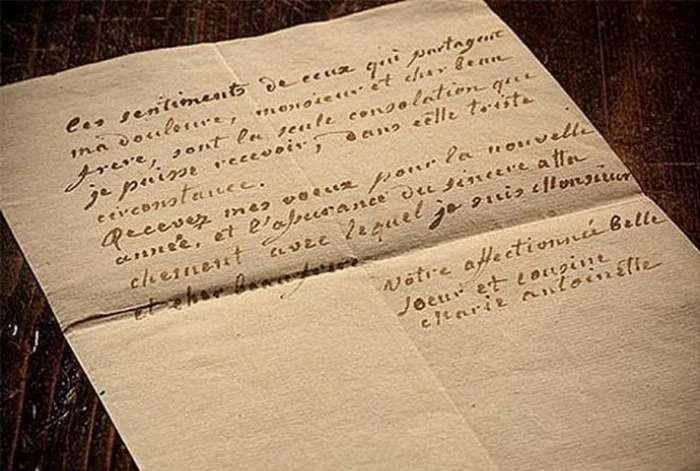 les sentiments de ceux qui partagent
ma douleure, monsieur et cher beau
frere, sont la seule consolation que
je puisse recevoir, dans cette triste
circonstance.
Recevez mes voeux pour la nouvelle
année, et l'assurance du sincere atta
chement avec lequel je suis Monsieur
et cher beau frere
Votre affectionnée belle
soeur et cousine
Marie antoinette